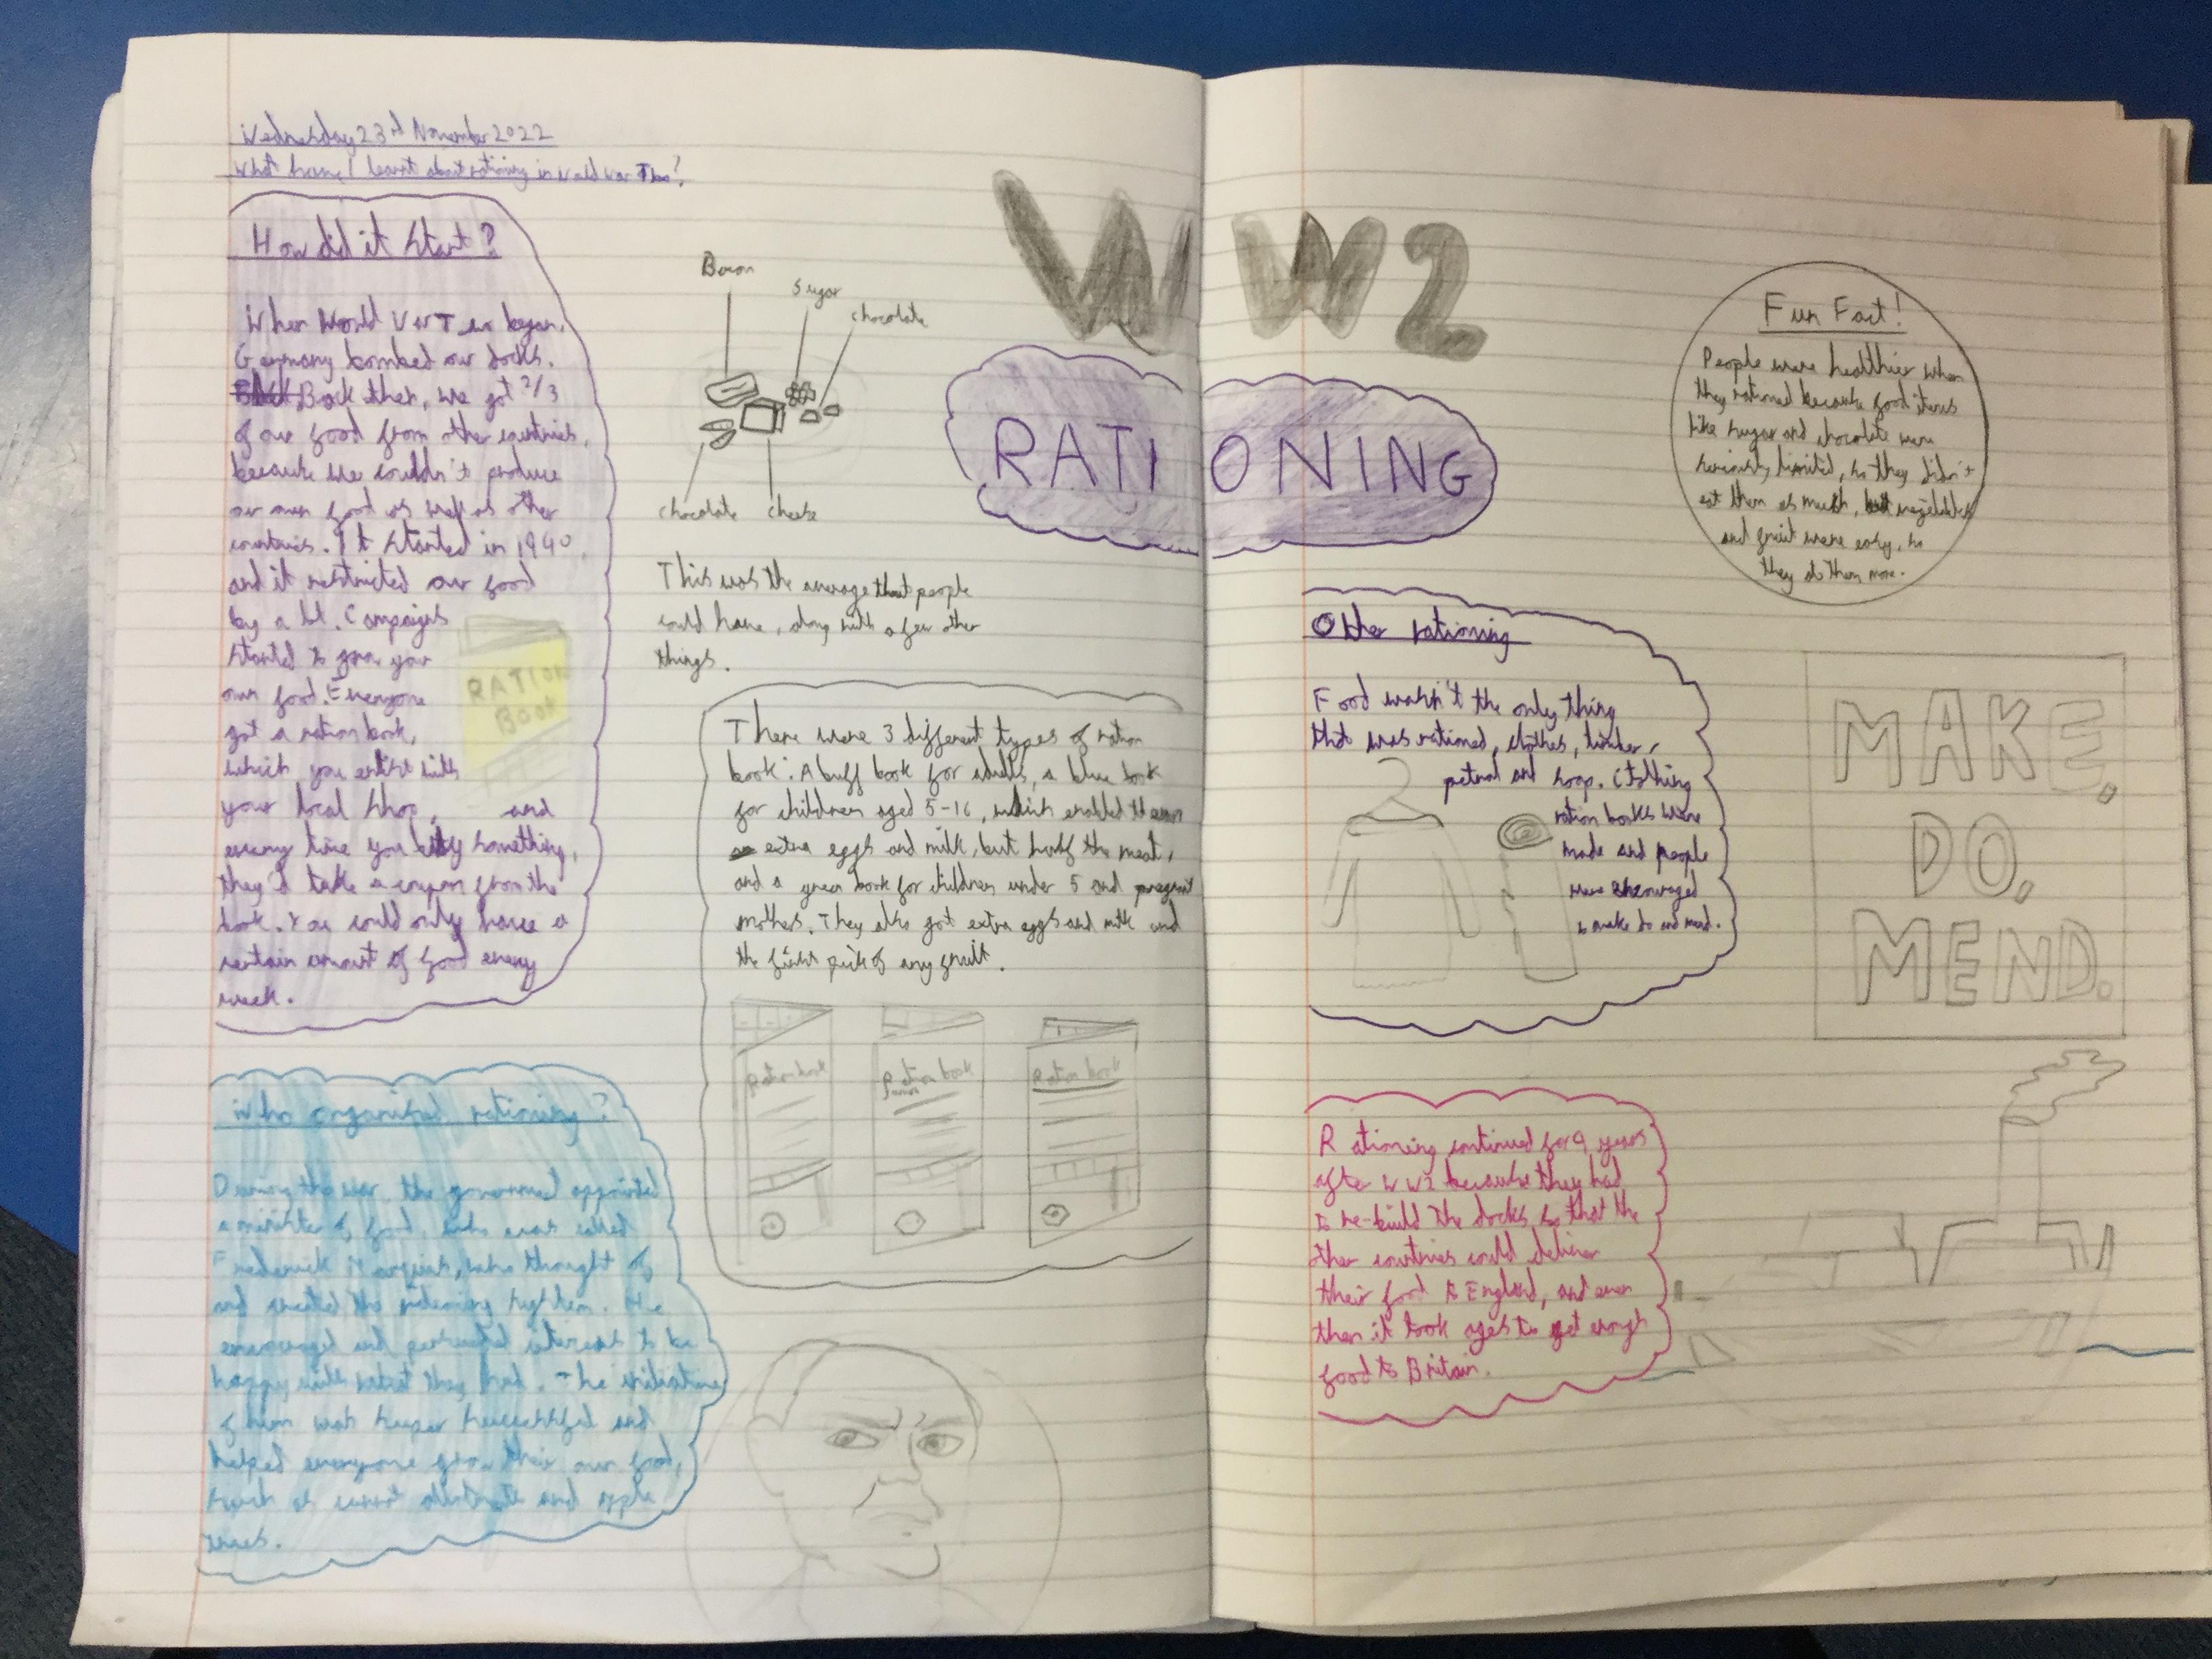 Wednesday 23rd November 2022
What have I learnt about rationing in World War Two?
How did it start?
When World War Two began,
Germany bombed our docks.
Back then, we got 2/3
of our food from other countries,
because we couldn't produce
our own food as well as other
countries. It started in 1940
and it restricted our food
by a lot. Campaigns
started to grow your
own food. Everyone
got a ration book,
which you enlist with
your local shop, and
every time you buy something,
they'd take a coupon from the
book. You could only have a
certain amount of food every
week.
RATION
BOOK
Who organised rationing?
During the war the government appointed
a minister of food, who was called
Frederick Marquis, who thought of
and created the rationing system. He
encouraged and persuaded to be
happy with what they had. The initiative
of him was super successful and
helped everyone grow their own food,
such as and apple
trees.
Bacon
Sugar
chocolate
chocolate
cheese
This was the average that people
could have, along with a few other
things.
There were 3 different types of ration
book. A buff book for adults, a blue book
for children aged 5-16, which enabled them
extra eggs and milk, but half the meat,
and a green book for children under 5 and pregnant
mothers. They also got extra eggs and milk and
the first pick of any fruit.
Ration book
Ration book
Ration book
WWW2
RATIONING
Fun Fact!
People were healthier when
they rationed because food items
like sugar and chocolate were
seriously limited, so they didn't
eat them as much, but vegetables
and fruit were easy, so
they ate them more.
Other rationing
Food wasn't the only thing
that was rationed, clothes, timber,
petrol and soap. Clothing
ration books were
made and people
were encouraged
to make do and mend.
MAKE,
DO,
MEND.
Rationing continued for 9 years
after WW2 because they had
to re-build the docks so that the
other countries could deliver
their food to England, and even
then it took ages to get enough
food to Britain.